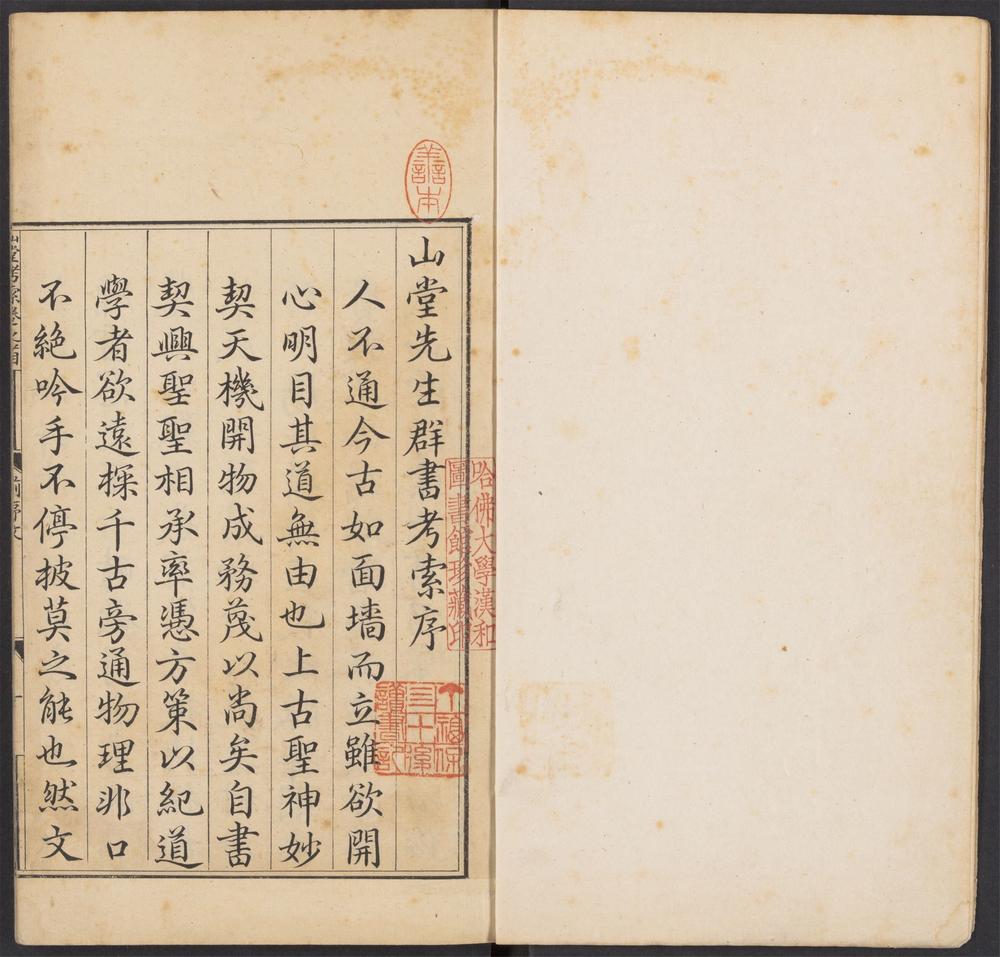 善本
山堂先生群書考索序
哈佛大學漢和
圖書館珍藏印
人不通今古如面墻而立雖欲開
心明目其道無由也上古聖神妙
契天機開物成務蔑以尚矣自書
契興聖聖相承率憑方策以紀道
學者欲遠探千古旁通物理非口
不絕吟手不停披莫之能也然文
山堂考索卷之首
前序文